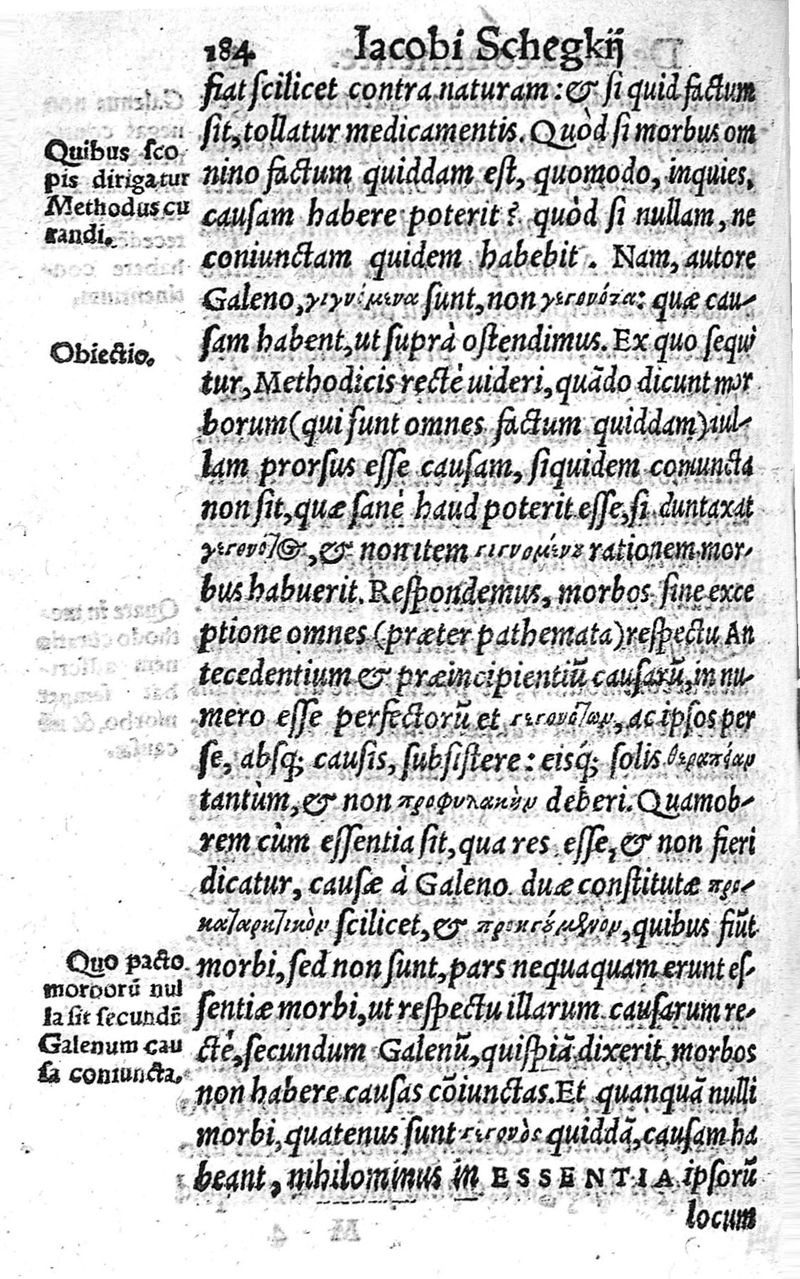 184 Iacobi Schegkij
fiat scilicet contra naturam: & si quid factum
sit, tollatur medicamentis. Quòd si morbus om
nino factum quiddam est, quomodo, inquies,
causam habere poterit? quòd si nullam, ne
coniunctam quidem habebit. Nam, autore
Galeno, γιγνόμενα sunt, non γεγονότα: quæ cau-
sam habent, ut suprà ostendimus. Ex quo sequi
tur, Methodicis rectè uideri, quādo dicunt mor
borum (qui sunt omnes factum quiddam) nul-
lam prorsus esse causam, siquidem coniuncta
non sit, quæ sanè haud poterit esse, si duntaxat
γεγονότος, & non item γιγνομένου rationem mor-
bus habuerit. Respondemus, morbos sine exce
ptione omnes (præter pathemata) respectu An
tecedentium & præincipientiū causarū, in nu-
mero esse perfectorū et γεγονότων, ac ipsos per
se, absq; causis, subsistere: eisq́; solis θεραπείαν
tantùm, & non προφυλακὴν deberi. Quamob-
rem cùm essentia sit, qua res esse, & non fieri
dicatur, causæ à Galeno duæ constitutæ προ-
καταρκτικὸν scilicet, & προηγούμενον, quibus fiūt
morbi, sed non sunt, pars nequaquam erunt es-
sentiæ morbi, ut respectu illarum causarum re-
ctè, secundum Galenū, quispiā dixerit morbos
non habere causas cōiunctas. Et quanquā nulli
morbi, quatenus sunt γεγονὸς quiddā, causam ha
beant, nihilominus in ESSENTIA ipsorū
locum
Quibus sco
pis dirigatur
Methodus cu
randi.
Obiectio.
Quo pacto
morborū nul
la sit secundū
Galenum cau
sa coniuncta.